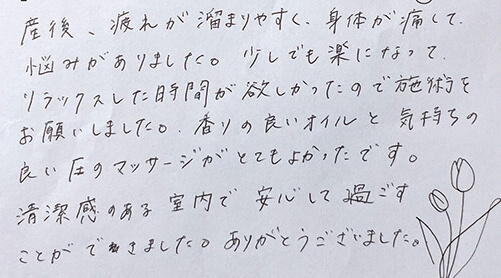 産後、疲れが溜まりやすく、身体が痛して、
悩みがありました。少しでも楽になって、
リラックスした時間が欲しかったので施術を
お願いしました。香りの良いオイルと気持ちの
良い圧のマッサージがとてもよかったです。
清潔感のある室内で安心して過ごす
ことができました。ありがとうございました。